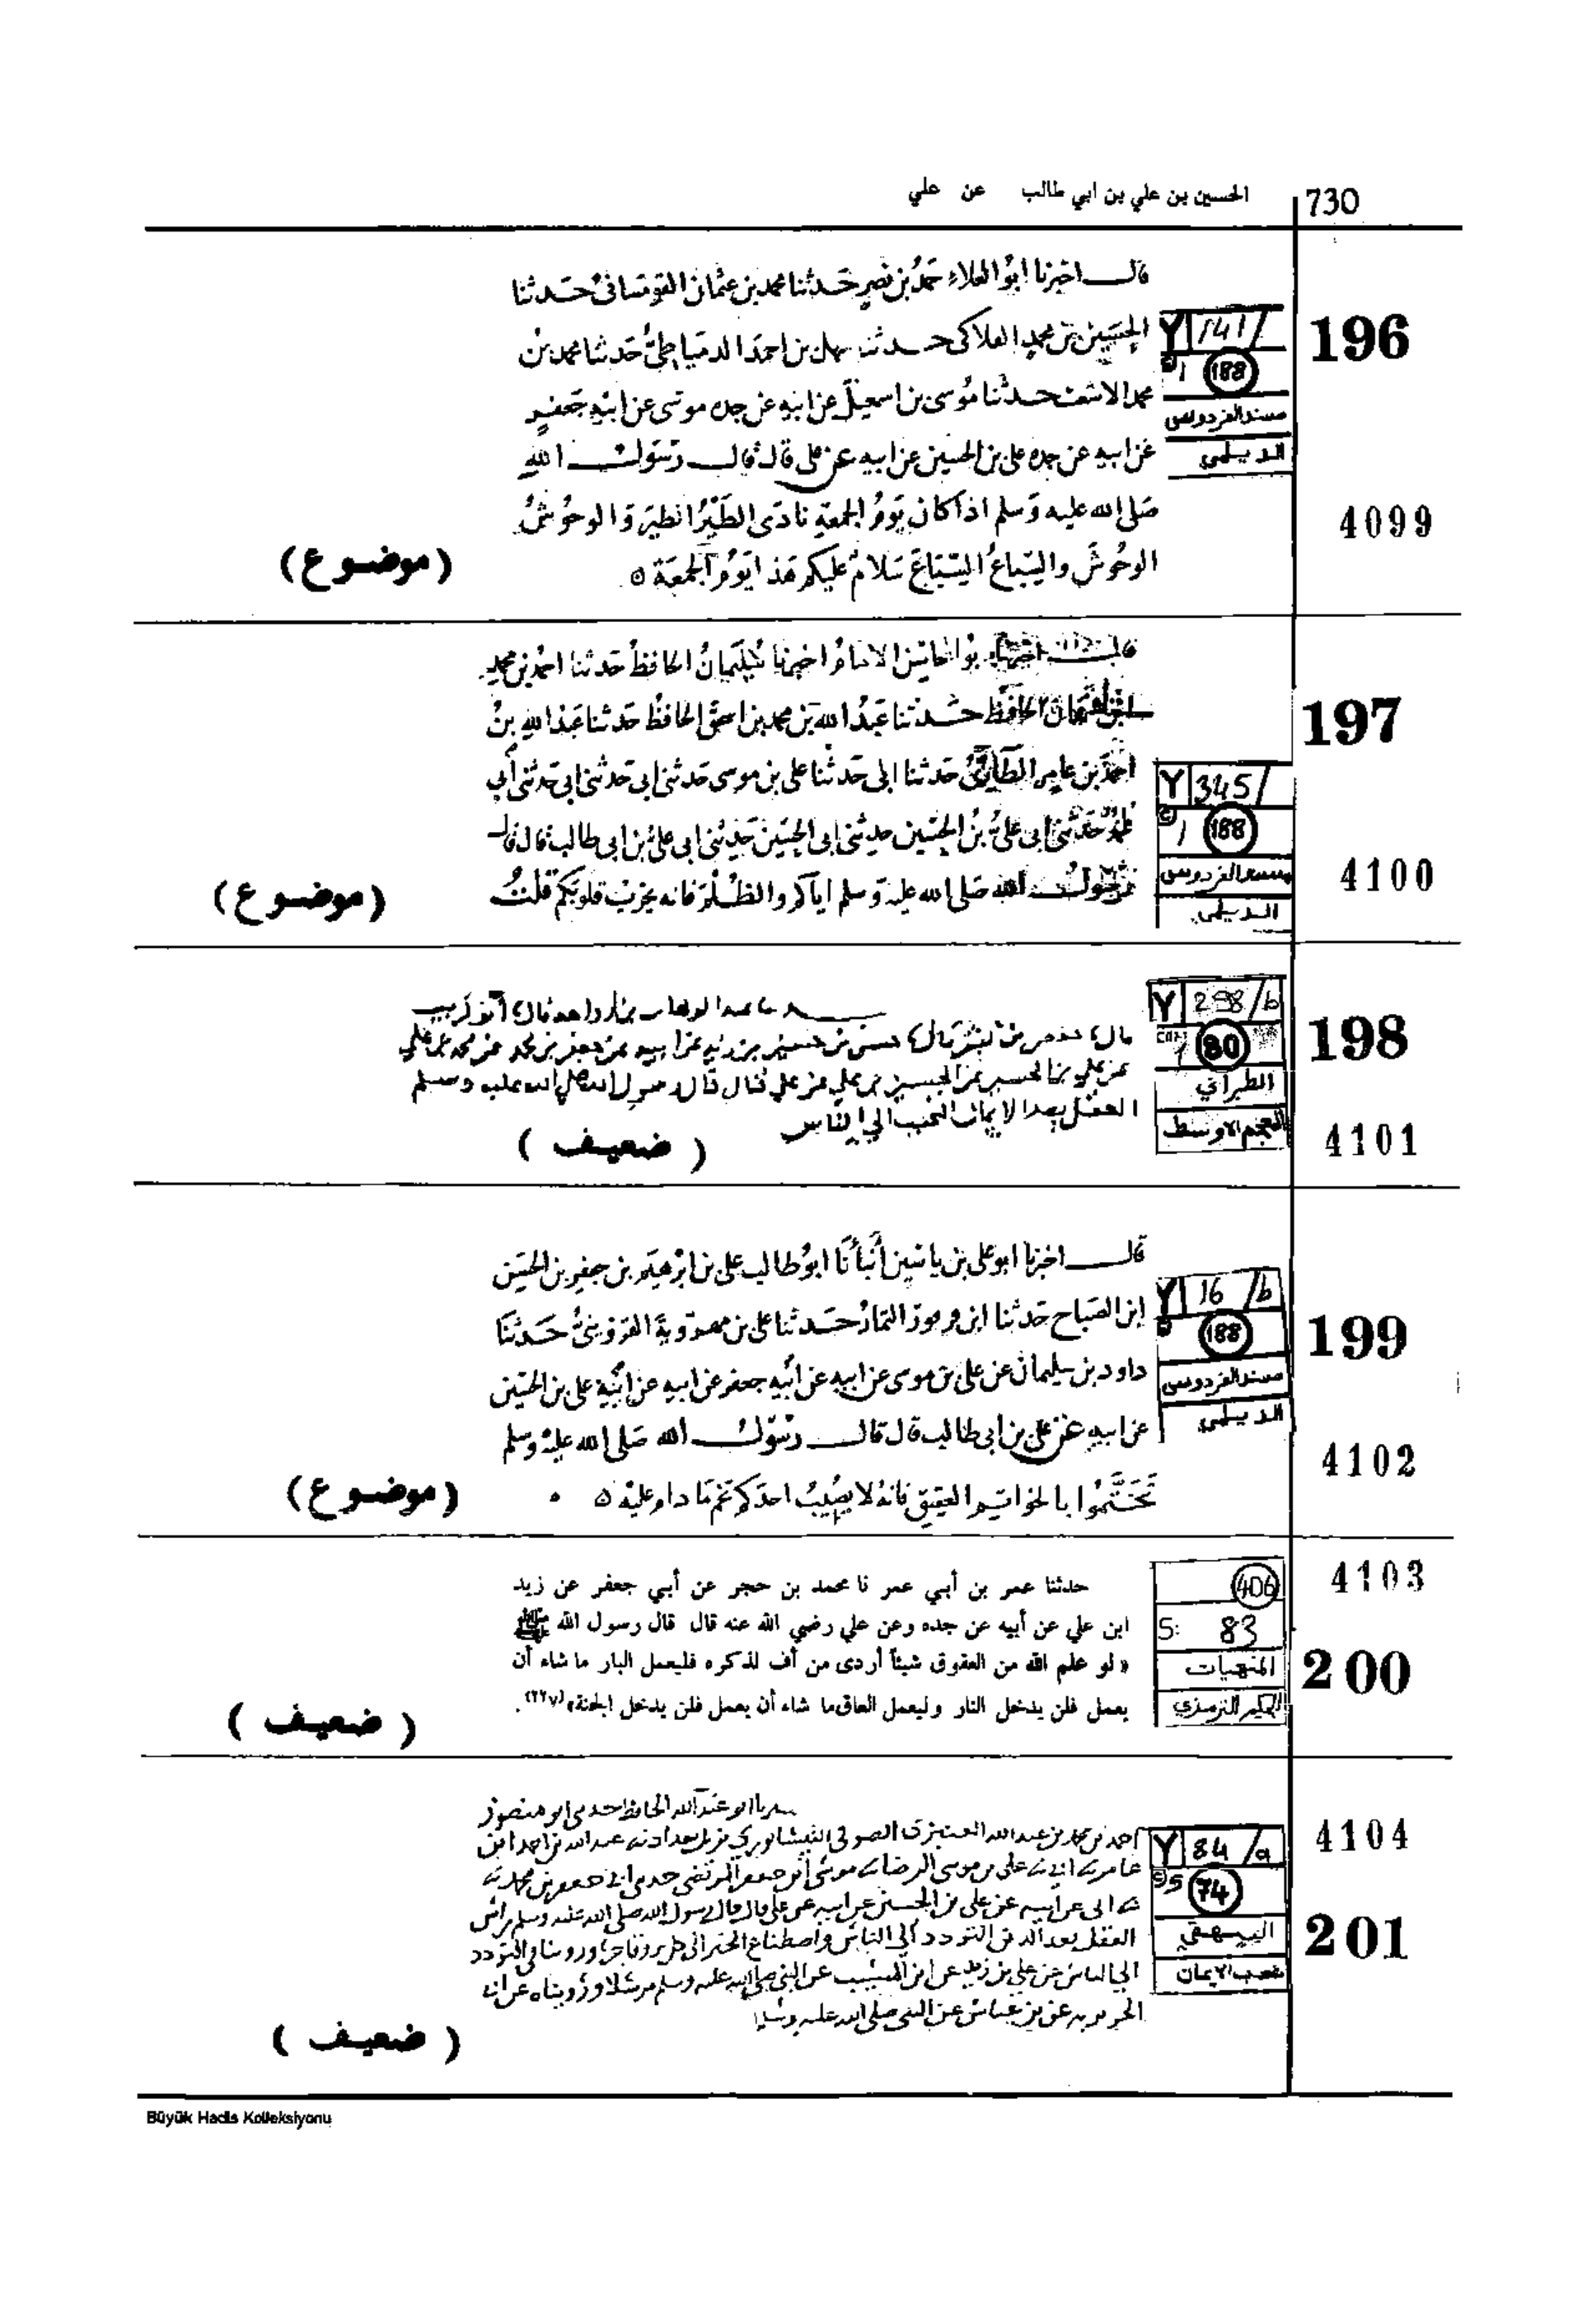 730
الحسين بن علي بن ابي طالب عن علي
قال اخبرنا ابو العلاء حمد بن نصر حدثنا محمد بن عثمان القومساني حدثنا
الحسين بن محمد الفلاكي حدثنا سهل بن احمد الدمياجي حدثنا محمد بن
محمد الاشعث حدثنا موسى بن اسمعيل عن ابيه عن جده موسى عن ابيه جعفر
عن ابيه عن جده علي بن الحسين عن ابيه عن علي قال قال رسول الله
صلى الله عليه وسلم اذا كان يوم الجمعة نادى الطير الطير والوحوش
الوحوش والسباع السباع سلام عليكم هذا يوم الجمعة ه
(موضوع)
Y 141/
188
مسند الفردوس
الديلمي
196
4099
قال اخبرنا الامام اخبرنا سليمان الحافظ حدثنا احمد بن محمد
الحافظ حدثنا عبد الله بن محمد بن اسحق الحافظ حدثنا عبد الله بن
احمد بن عامر الطائي حدثنا ابي حدثنا علي بن موسى حدثني ابي حدثني ابي حدثني أبي
حدثني ابي علي بن الحسين حدثني ابي الحسين حدثني ابي علي بن ابي طالب قال قال
رسول الله صلى الله عليه وسلم اياكم والظلم فانه يخرب قلوبكم قلت
(موضوع)
197
Y 345/
1 188
مسند الفردوس
الديلمي
4100
عبد الوهاب بن رواحة قال أبو كريب
قال حفص بن بشر قال حسن بن حسين بن زيد عن ابيه عن جعفر بن محمد عن محمد بن علي
عن علي بن الحسين عن الحسين بن علي عن علي قال قال رسول الله صلى الله عليه وسلم
العقل بعد الايمان التحبب الى الناس
( ضعيف )
Y 298/b
80
الطبراني
المعجم الاوسط
198
4101
قال اخبرنا ابو علي بن ياسين أنبأنا ابو طالب علي بن ابرهيم بن جعفر بن الحسين
ابن الصباح حدثنا ابن ورموز التمار حدثنا علي بن مهروية القزويني حدثنا
داود بن سليمان عن علي بن موسى عن ابيه عن ابيه جعفر عن ابيه عن ابيه علي بن الحسين
عن ابيه عن علي بن ابي طالب قال قال رسول الله صلى الله عليه وسلم
تختموا بالخواتيم العقيق فانه لا يصيب احدكم غم ما دام عليه ه
(موضوع)
Y 16/b
188
مسند الفردوس
الديلمي
199
4102
حدثنا عمر بن أبي عمر نا محمد بن حجر عن أبي جعفر عن زيد
ابن علي عن أبيه عن جده وعن علي رضي الله عنه قال قال رسول الله ﷺ
« لو علم الله من العقوق شيئاً أردى من أف لذكره فليعمل البار ما شاء أن
يعمل فلن يدخل النار وليعمل العاق ما شاء أن يعمل فلن يدخل الجنة» (٢٢٧).
( ضعيف )
406
S: 83
المنهيات
الحكيم الترمذي
4103
200
ابو عبد الله الحافظ حدثني ابو منصور
احمد بن محمد بن عبد الله الصوفي النيسابوري نزيل بغداد عبد الله بن احمد ابن
عامر علي بن موسى الرضا موسى بن جعفر المرتضى حدثني ابي جعفر بن محمد
ابي عن ابيه عن علي بن الحسين عن ابيه عن علي قال قال رسول الله صلى الله عليه وسلم راس
العقل بعد الدين التودد الى الناس واصطناع الخير الى كل بر وفاجر وروينا في التودد
الى الناس عن علي بن زيد عن ابن المسيب عن النبي صلى الله عليه وسلم مرسلا ورويناه
عن النبي صلى الله عليه وسلم
( ضعيف )
Y 84/a
5 74
البيهقي
شعب الايمان
4104
201
Büyük Hadis Kolleksiyonu